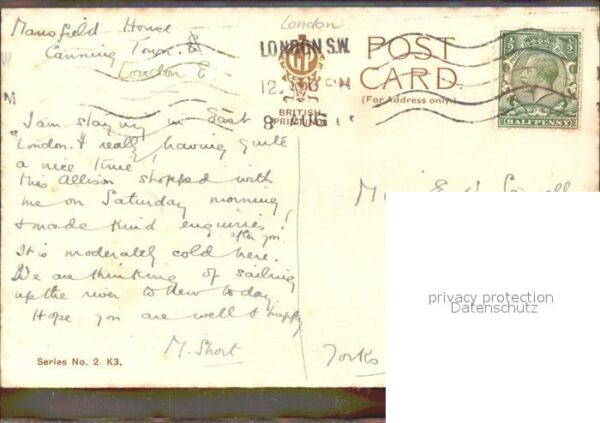 Mansfield House
Canning Town. E
London E
London
LONDON S.W.
12.
8 AUG 1
POST
CARD.
(For Address only.)
BRITISH
PRINTING
HALFPENNY
I am staying in East
London. & really having quite
a nice time,
Miss Allison shopped with
me on Saturday morning,
& made kind enquiries
after you.
It is moderately cold here.
We are thinking of sailing
up the river to Kew today.
Hope you are well & happy
M. Short
Yorks
Series No. 2. K3.
privacy protection
Datenschutz